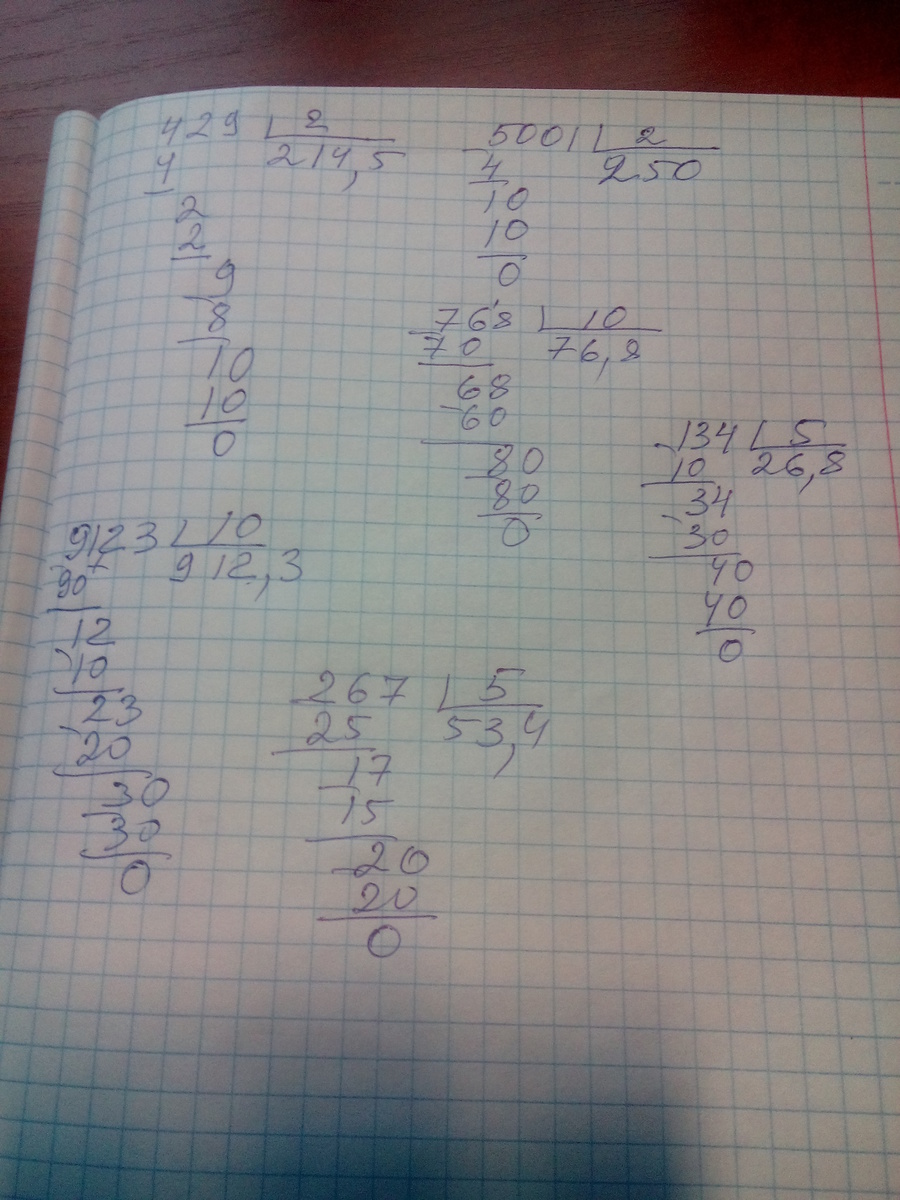 429 2
4 214,5
2
2
9
8
10
10
0
5001 2
4 250
10
10
0
768 10
70 76,8
68
60
80
80
0
134 5
10 26,8
34
30
40
40
0
9123 10
90 912,3
12
10
23
20
30
30
0
267 5
25 53,4
17
15
20
20
0